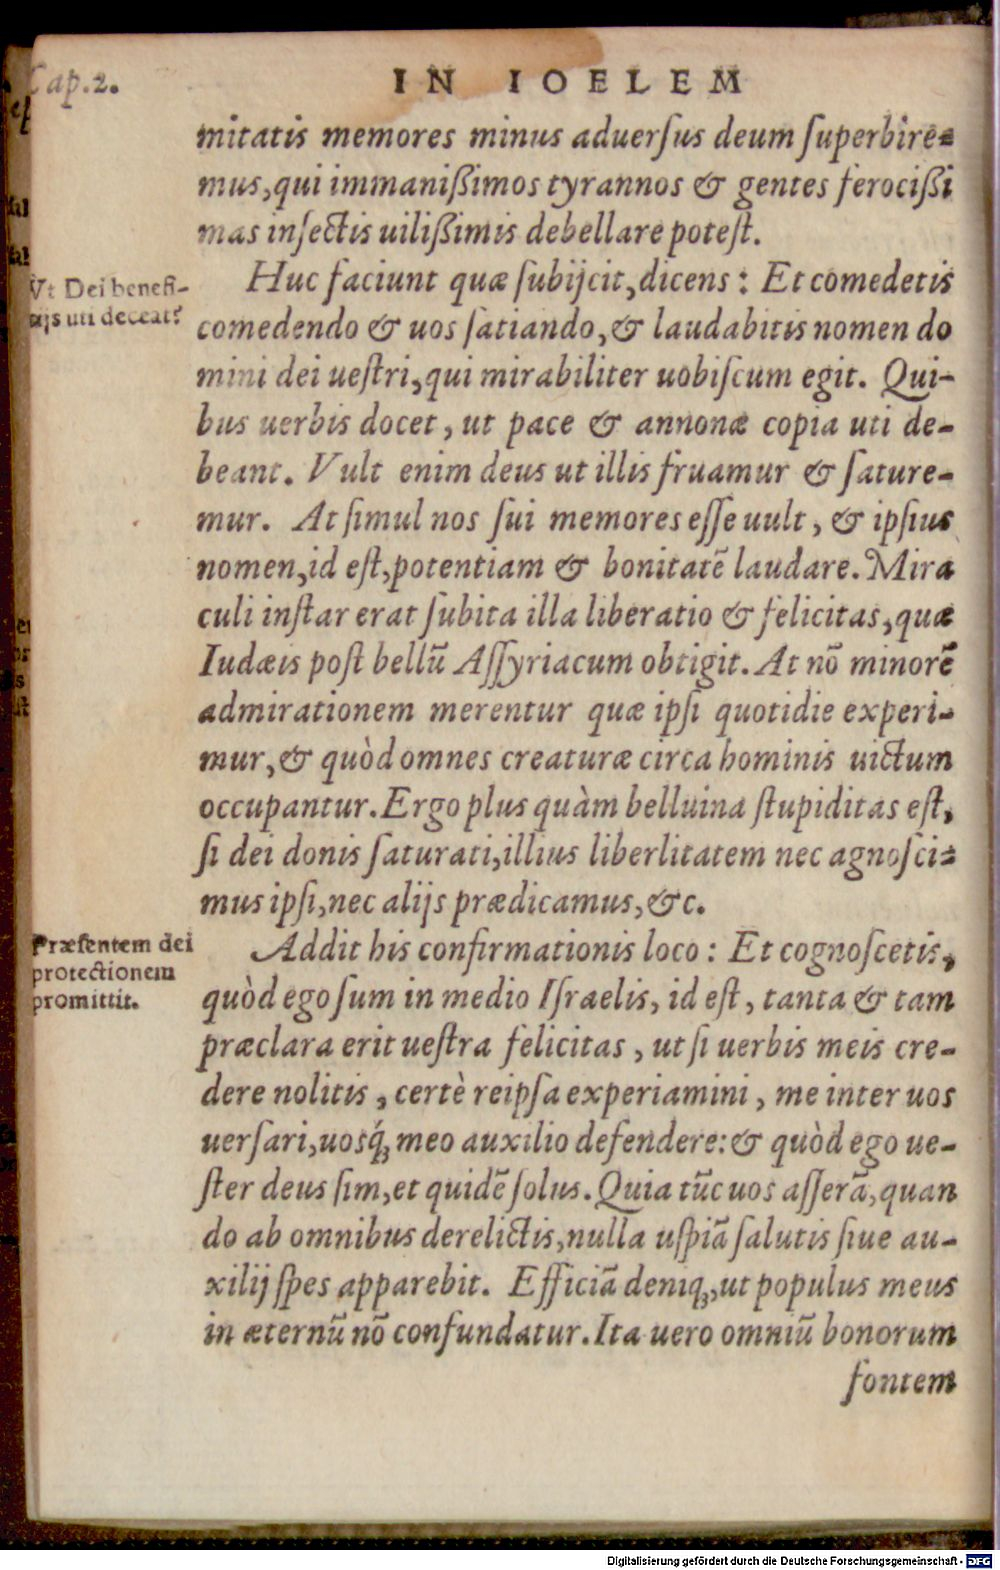 Cap.2.
IN IOELEM
mitatis memores minus aduerſus deum ſuperbire-
mus, qui immanißimos tyrannos & gentes ferocißi
mas inſectis uilißimis debellare poteſt.
Huc faciunt quæ ſubijcit, dicens: Et comedetis
Vt Dei benefi-
cijs uti deceat?
comedendo & uos ſatiando, & laudabitis nomen do
mini dei ueſtri, qui mirabiliter uobiſcum egit. Qui-
bus uerbis docet, ut pace & annonæ copia uti de-
beant. Vult enim deus ut illis fruamur & ſature-
mur. At ſimul nos ſui memores eſſe uult, & ipſius
nomen, id eſt, potentiam & bonitatē laudare. Mira
culi inſtar erat ſubita illa liberatio & felicitas, quæ
Iudæis poſt bellū Aſſyriacum obtigit. At nō minorē
admirationem merentur quæ ipſi quotidie experi-
mur, & quòd omnes creaturæ circa hominis uictum
occupantur. Ergo plus quàm belluina ſtupiditas eſt,
ſi dei donis ſaturati, illius liberlitatem nec agnoſci-
mus ipſi, nec alijs prædicamus, &c.
Præſentem dei
protectionem
promittit.
Addit his confirmationis loco: Et cognoſcetis,
quòd ego ſum in medio Iſraelis, id eſt, tanta & tam
præclara erit ueſtra felicitas, ut ſi uerbis meis cre-
dere nolitis, certè reipſa experiamini, me inter uos
uerſari, uosq́; meo auxilio defendere: & quòd ego ue-
ſter deus ſim, et quidē ſolus. Quia tūc uos aſſerā, quan
do ab omnibus derelictis, nulla uſpiā ſalutis ſiue au-
xilij ſpes apparebit. Efficiā deniq;, ut populus meus
in æternū nō confundatur. Ita uero omniū bonorum
fontem
Digitalisierung gefördert durch die Deutsche Forschungsgemeinschaft - DFG